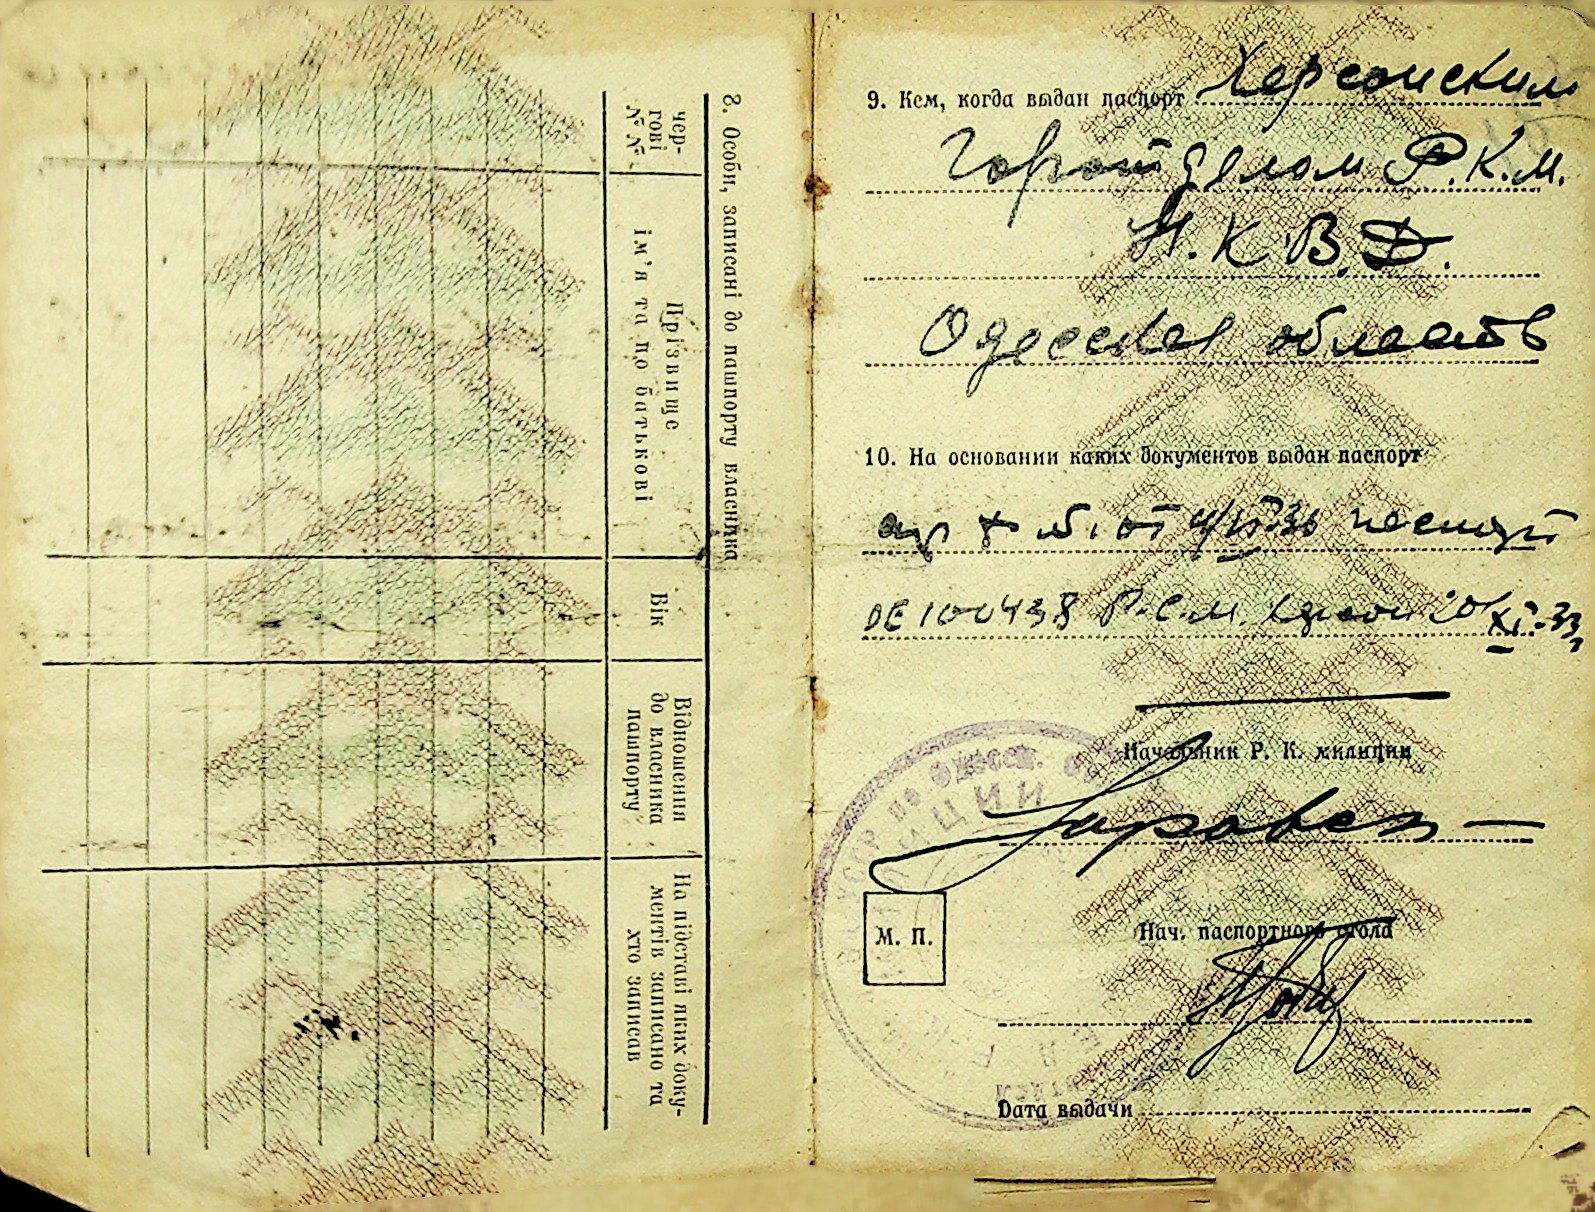 8. Особи, записані до пашпорту власника
чер-
гові
№ №
Прізвище
ім'я та по батькові
Вік
Відношення
до власника
пашпорту
На підставі яких доку-
ментів записано та
хто записав
9. Кем, когда выдан паспорт Херсонским
Горотделом Р.К.М.
Н.К.В.Д.
Одесская область
10. На основании каких документов выдан паспорт
от паспорт
DE 100438 Р.С.М. Херсон 20/XI-33
Начальник Р. К. милиции
М. П.
Нач. паспортного стола
Dата выдачи